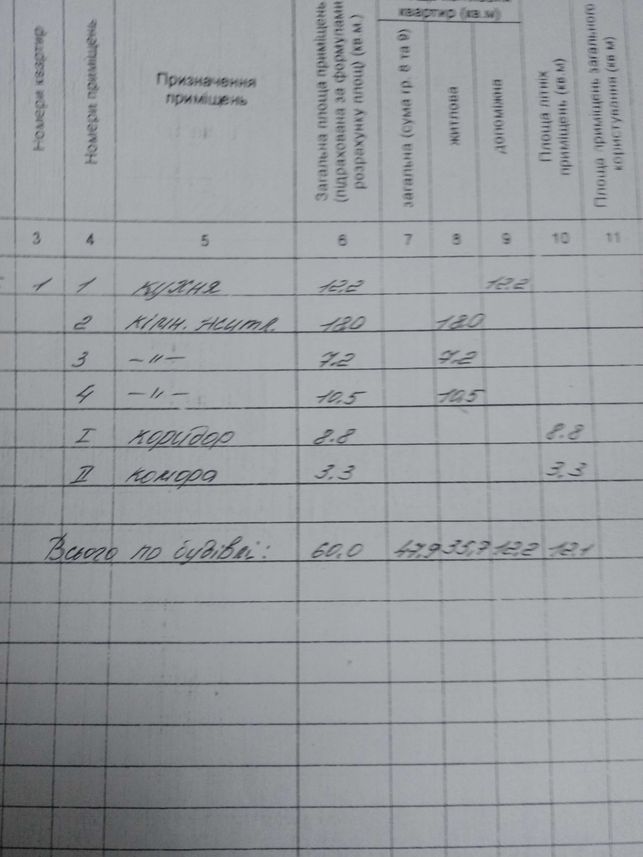 Номери квартир
Номери приміщень
Призначення
приміщень
Загальна площа приміщень
(підрахована за формулами
розрахунку площ) (кв.м.)
квартир (кв.м)
загальна (сума гр. 8 та 9)
житлова
допоміжна
Площа літніх
приміщень (кв.м)
Площа приміщень загального
користування (кв.м)
3 4 5 6 7 8 9 10 11
1 1 кухня 12,2 12,2
2 кімн. житл. 18,0 18,0
3 –"– 7.2 7.2
4 –"– 10.5 10,5
I коридор 8.8 8.8
II комора 3.3 3.3
Всього по будівлі: 60.0 47,9 35,7 12,2 12.1